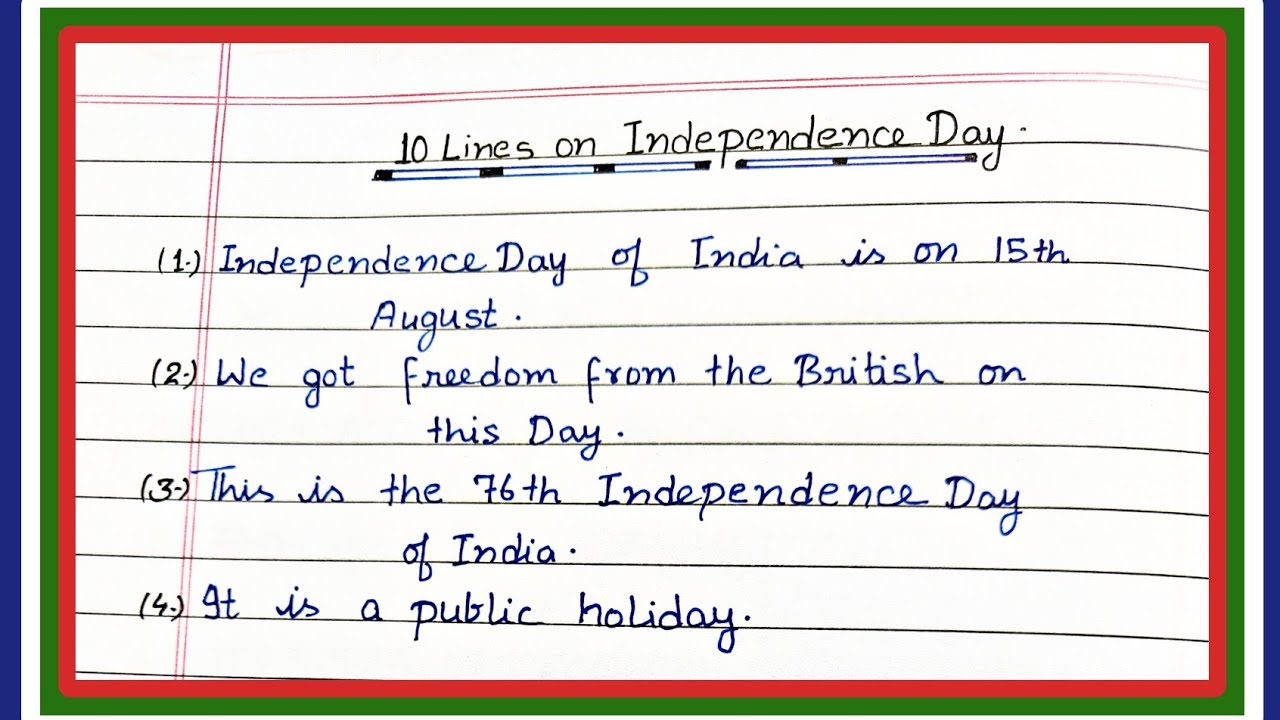 10 Lines on Independence Day.
(1.) Independence Day of India is on 15th
August.
(2.) We got freedom from the British on
this Day.
(3.) This is the 76th Independence Day
of India.
(4.) It is a public holiday.